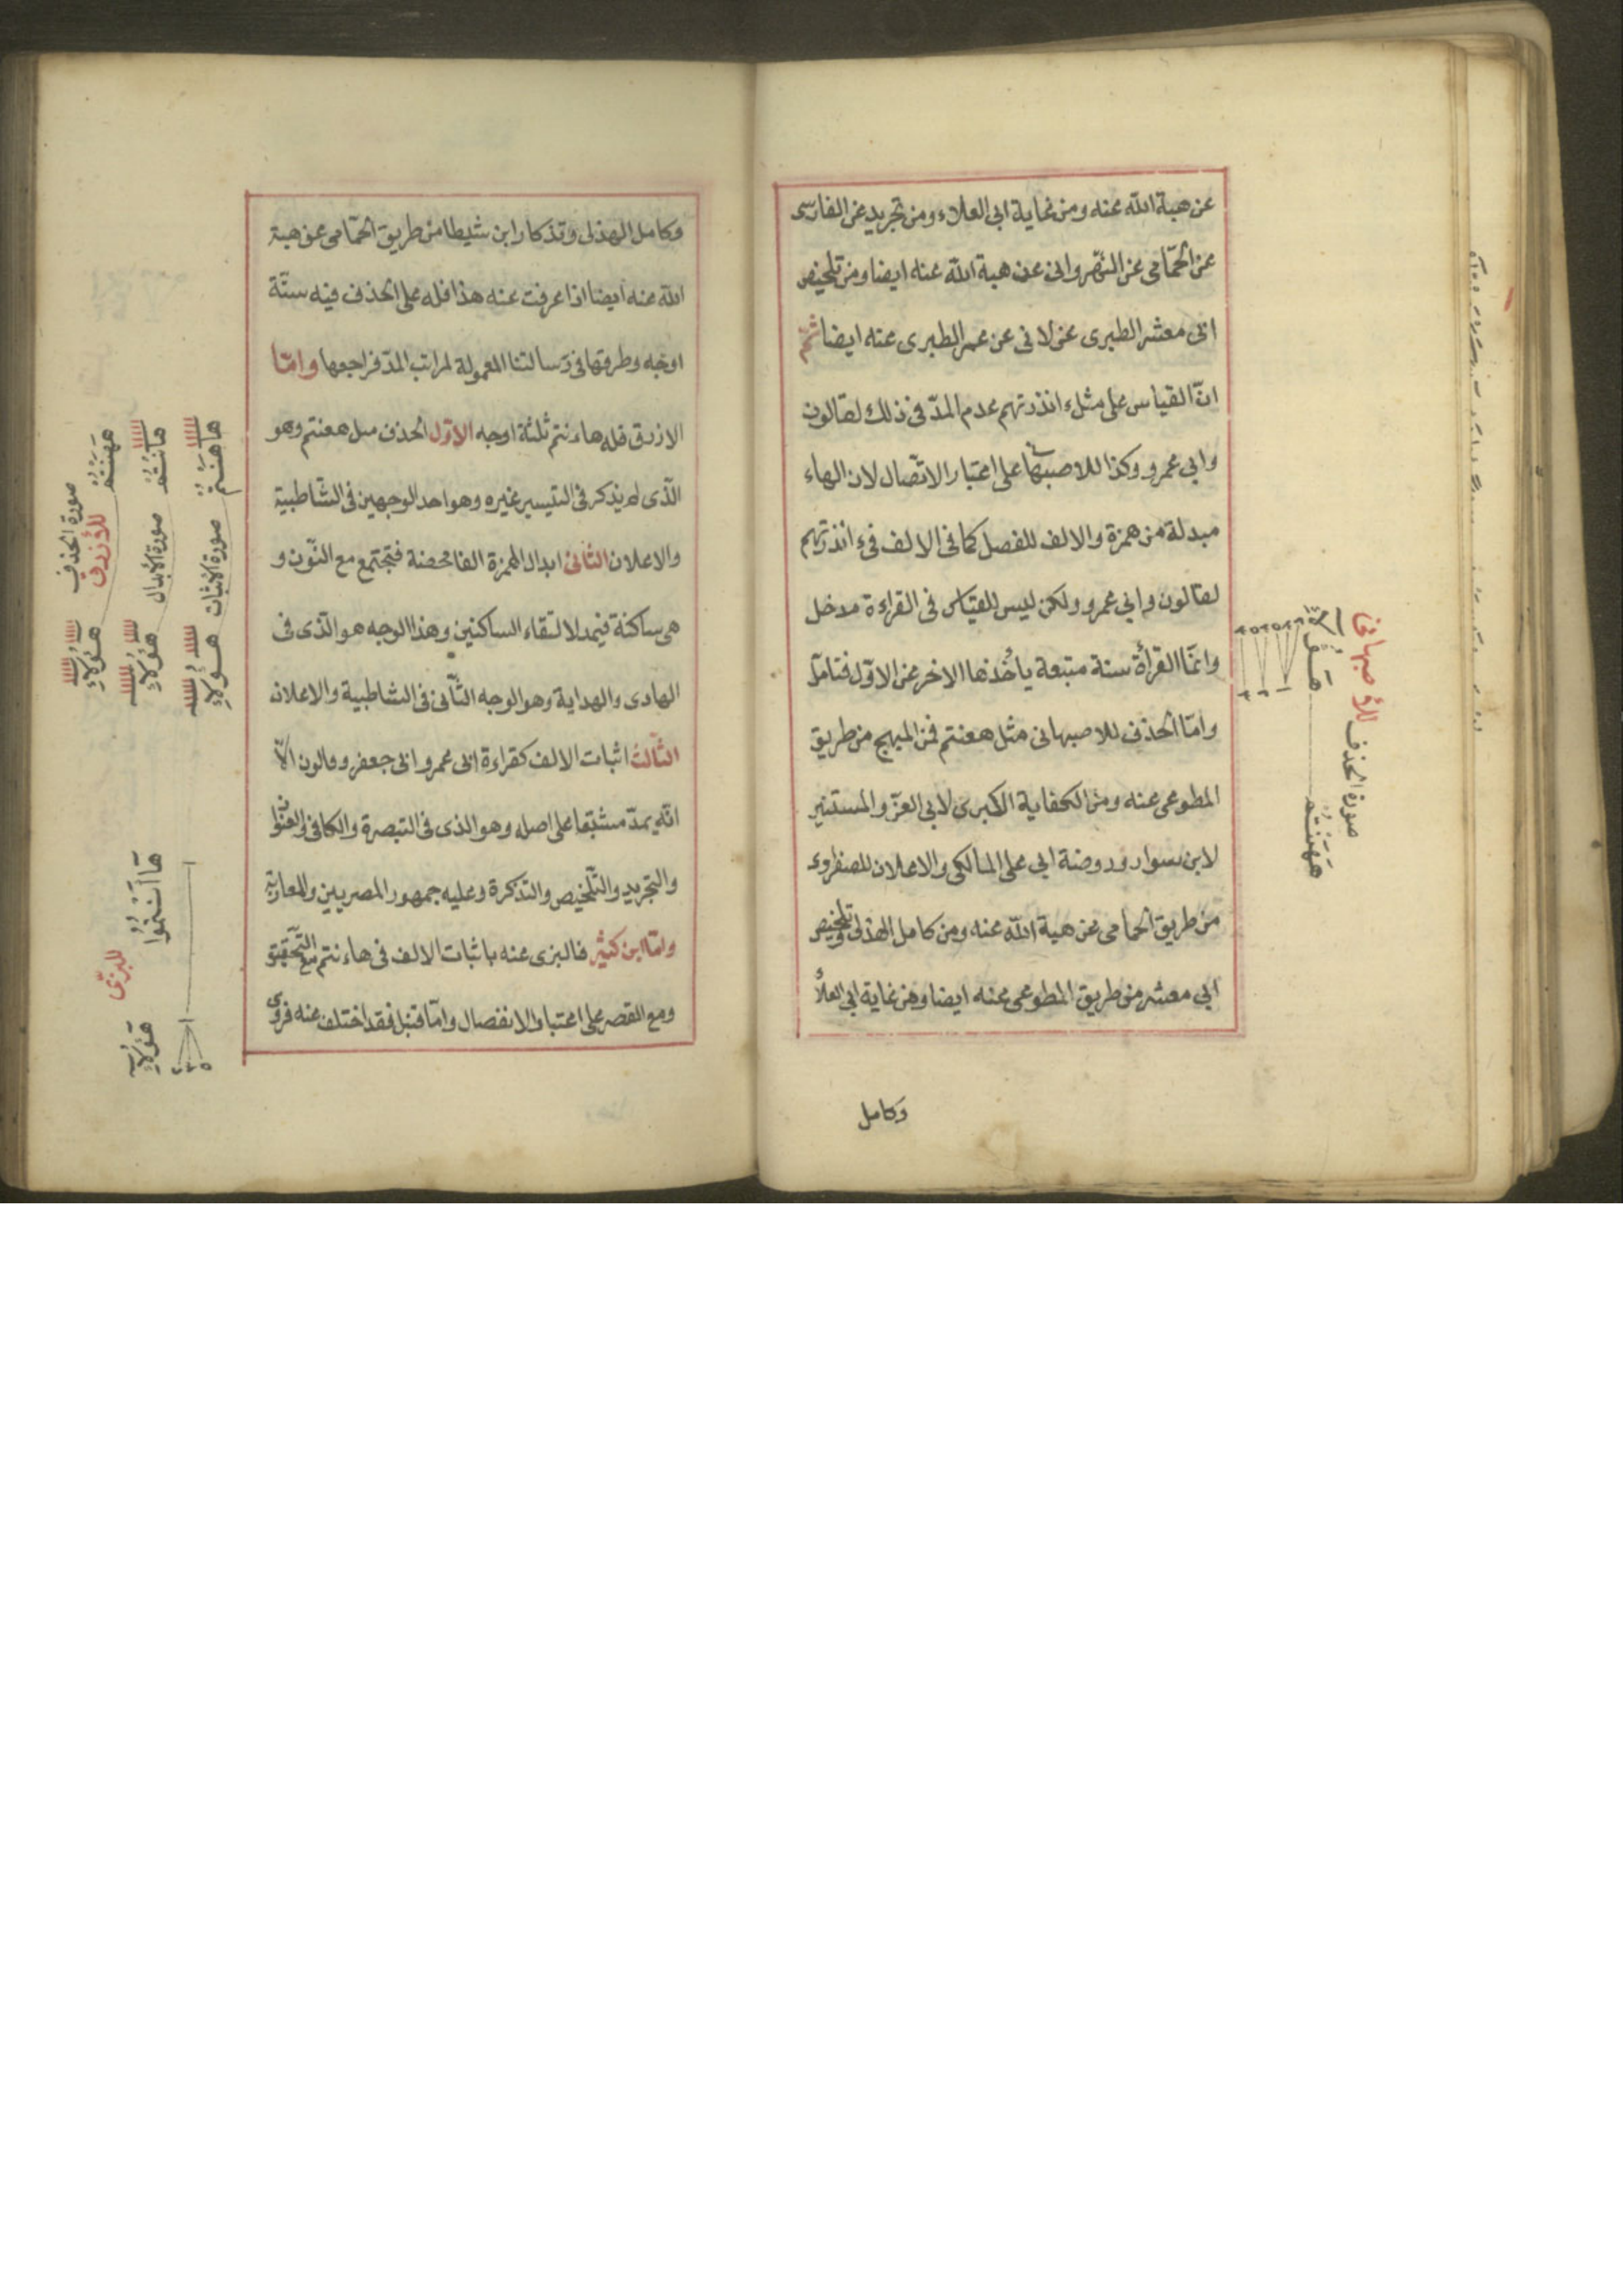 عن هبة الله عنه ومن غاية ابى العلاء ومن تجريد عن الفارسى
عن الحمّامى عن النّهروانى عن هبة الله عنه ايضا ومن تلخيص
ابى معشر الطبرى عن لانى عن عمر الطبرى عنه ايضا ثمّ
انّ القياس على مثل ءانذرتهم عدم المدّ فى ذلك لقالون
وابى عمرو وكذا للاصبهانى على اعتبار الاتّصال لان الهاء
مبدلة من همزة والالف للفصل كما فى الالف فى ءانذرتهم
لقالون وابى عمرو ولكن ليس للقياس فى القراءة مدخل
وانمّا القرأة سنة متبعة يأخذها الاخر عن الاوّل فتامّل
وامّا الحذف للاصبهانى مثل هعنتم فمن المبهج من طريق
المطوعى عنه ومن الكفاية الكبرى لابى العزّ والمستنير
لابن سوار وروضة ابى على المالكى والاعلان للصفراوى
من طريق الحمامى عن هبة الله عنه ومن كامل الهذلى وتلخيص
ابى معشر من طريق المطوعى عنه ايضا ومن غاية ابى العلأ
وكامل
للأصبهانى
صورة الحذف
هَهَنْتُم
هَؤُلَاءِ
وكامل الهذلى وتذكار ابن شيطا من طريق الحمّامى عن هبة
الله عنه ايضا اذا عرفت عنه هذا فله على الحذف فيه ستّة
اوجه وطرقها فى رسالتنا المعمولة لمراتب المدّ فراجعها وامّا
الازرق فله هاءنتم ثلثة اوجه الاوّل الحذف مثل هعنتم وهو
الّذى لم يذكر فى التيسير غيره وهو احد الوجهين فى الشّاطبية
والاعلان الثّانى ابدال الهمزة الفا محضة فتجتمع مع النّون و
هى ساكنة فيمد لالتقاء الساكنين وهذا الوجه هو الّذى فى
الهادى والهداية وهو الوجه الثّانى فى الشاطبية والاعلان
الثّالث اثبات الالف كقراءة ابى عمرو وابى جعفر وقالون الّا
انّه يمدّ مشبّعا على اصله وهو الذى فى التبصرة والكافى والعنوان
والتجريد والتّلخيص والتذكرة وعليه جمهور المصريين والمغاربة
وامّا ابن كثير فالبزى عنه باثبات الالف فى هاءنتم مع التّحقيق
ومع القصر على اعتبار الانفصال وامّا قنبل فقد اختلف عنه فروى
صورة الحذف
للأزرق
هَهَنْتُمْ
هؤُلَاءِ
صورة الأبدال
هاَنْتُمْ
هؤُلَاءِ
صورة الاثبات
هاهَنْتُمْ
هؤُلَاءِ
للبزّى
هَآ أَنْتُمُوا
هَؤُلَاءِ